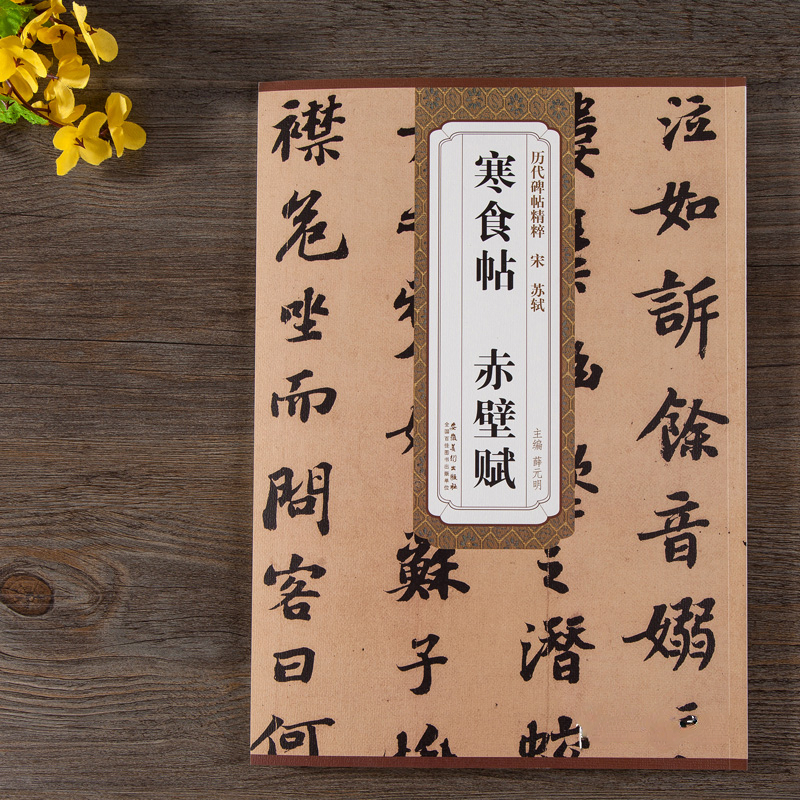 泣如訴餘音嫋
之潛蛟
蘇子
襟危坐而問客曰何
历代碑帖精粹 宋 苏轼
寒食帖 赤壁赋
主编 薛元明
安徽美术出版社
全国百佳图书出版单位